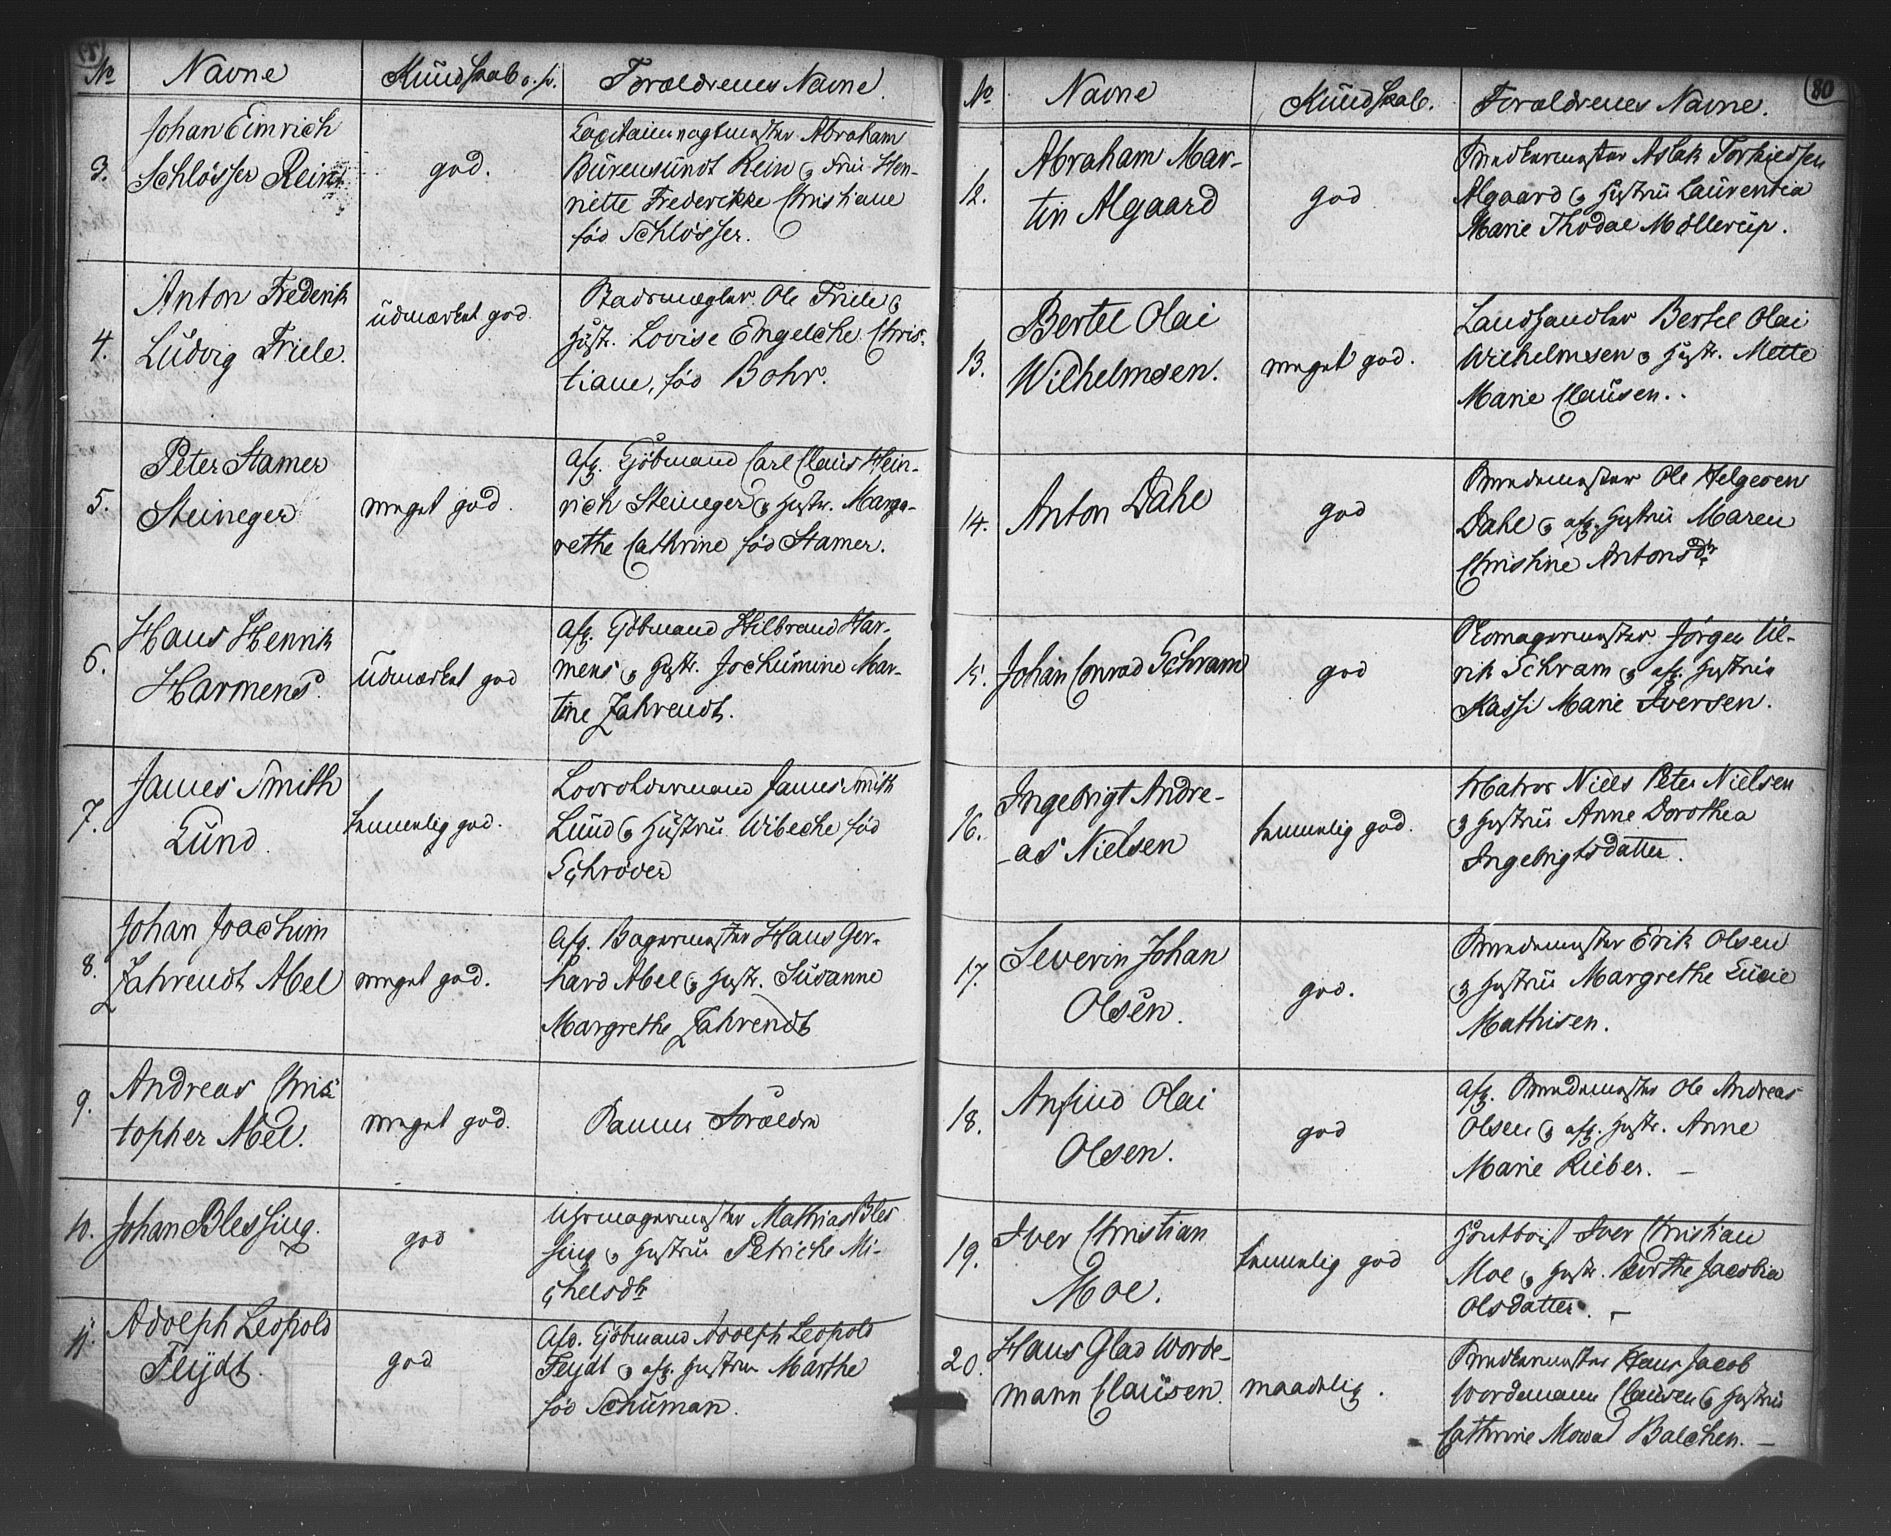 No Navne Kundskab o. s. Forældrenes Navne.
3. Johan Eimrich
Schlösser Rein
god.
Capitainvagtmester Abraham
Bürensundt Rein & Frue Hen-
riette Frederikke Christiane
fød Schlösser.
4. Anton Frederik
Ludvig Friele.
udmærket god.
Ole Friele &
Hustr. Lovise Engelche Chris-
tiane, fød Bohr.
5. Peter Stamer
Steineger
meget god.
Afg. Kjøbmand Carl Claus Hein-
rich Steineger & Hustr. Marga-
rethe Cathrine fød Stamer.
6. Hans Henrik
Harmens.
udmærket god
Afg. Kjøbmand Hilbrand Har-
mens & Hustr. Jochumine Mar-
tine Zahrendt.
7. James Smith
Lund.
temmelig god.
Lodsoldermand James Smith
Lund & Hustrue Wibeche fød
Schrøder
8. Johan Joachim
Zahrendt Abel
meget god.
Afg. Bagermester Hans Ger-
hard Abel & Hustr. Susanne
Margrethe Zahrendt
9. Andreas Chris
topher Abel.
meget god.
Samme Forældre
10. Johan Blessing.
god
Uhrmagermester Mathias Bles
sing & Hustrue Petriche Mi-
chelsdtr
11. Adolph Leopold
Fleydt.
god
Afd. Kjøbmand Adolph Leopold
Fleydt & afg. Hustrue Marthe
fød Schuman.
80
No Navne Kundskab. Forældrenes Navne.
12. Abraham Mar-
tin Algaard
god
Snedkermester Aslak Torkildsen
Algaard & Hustrue Laurentia
Marie Thodal Møllerup.
13. Bertel Olai
Wilhelmsen.
meget god.
Landhandler Bertel Olai
Wilhelmsen & Hustr. Mette
Marie Clausen.
14. Anton Dahl
god
Smedemester Ole Helgesen
Dahl & afg. Hustrue Maren
Christine Antonsdtr
15. Johan Conrad Schram
god
Skomagermester Jörgen Ul-
rik Schram & afg. Hustrue
Massi Marie Iversen.
16. Ingebrigt Andre-
-as Nielsen
temmelig god.
Matros Niels Peter Nielsen
& Hustrue Anne Dorothea
Ingebrigtsdatter.
17. Severin Johan
Olsen.
god.
Smedemester Erik Olsen
& Hustrue Margrethe Lucie
Mathisen.
18. Anfind Olai
Olsen.
god
Afg. Smedemester Ole Andreas
Olsen & afg. Hustr. Anne
Marie Rieber. –
19. Iver Christian
Moe.
temmelig god
Hautboist Iver Christian
Moe & Hustr. Birthe Jacobia
Olsdatter. –
20. Hans Glad Worde-
mann Clausen.
maadelig.
Snedkermester Hans Jacob
Wordemann Clausen & Hustrue
Cathrine Balchen. –